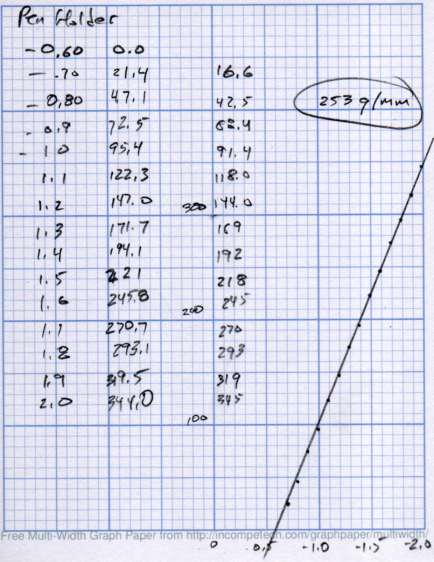 Pen Holder
-0.60 0.0
-.70 21.4 16.6
-0.80 47.1 42.5
253 g/mm
-0.9 72.5 68.4
-1.0 95.4 91.4
1.1 122.3 118.0
1.2 147.0 300 144.0
1.3 171.7 169
1.4 194.1 192
1.5 221 218
1.6 245.8 245
200
1.7 270.7 270
1.8 293.1 293
1.9 319.5 319
2.0 344.0 345
100
Free Multi-Width Graph Paper from http://incompetech.com/graphpaper/multiwidth/
0 0.5 -1.0 -1.5 -2.0